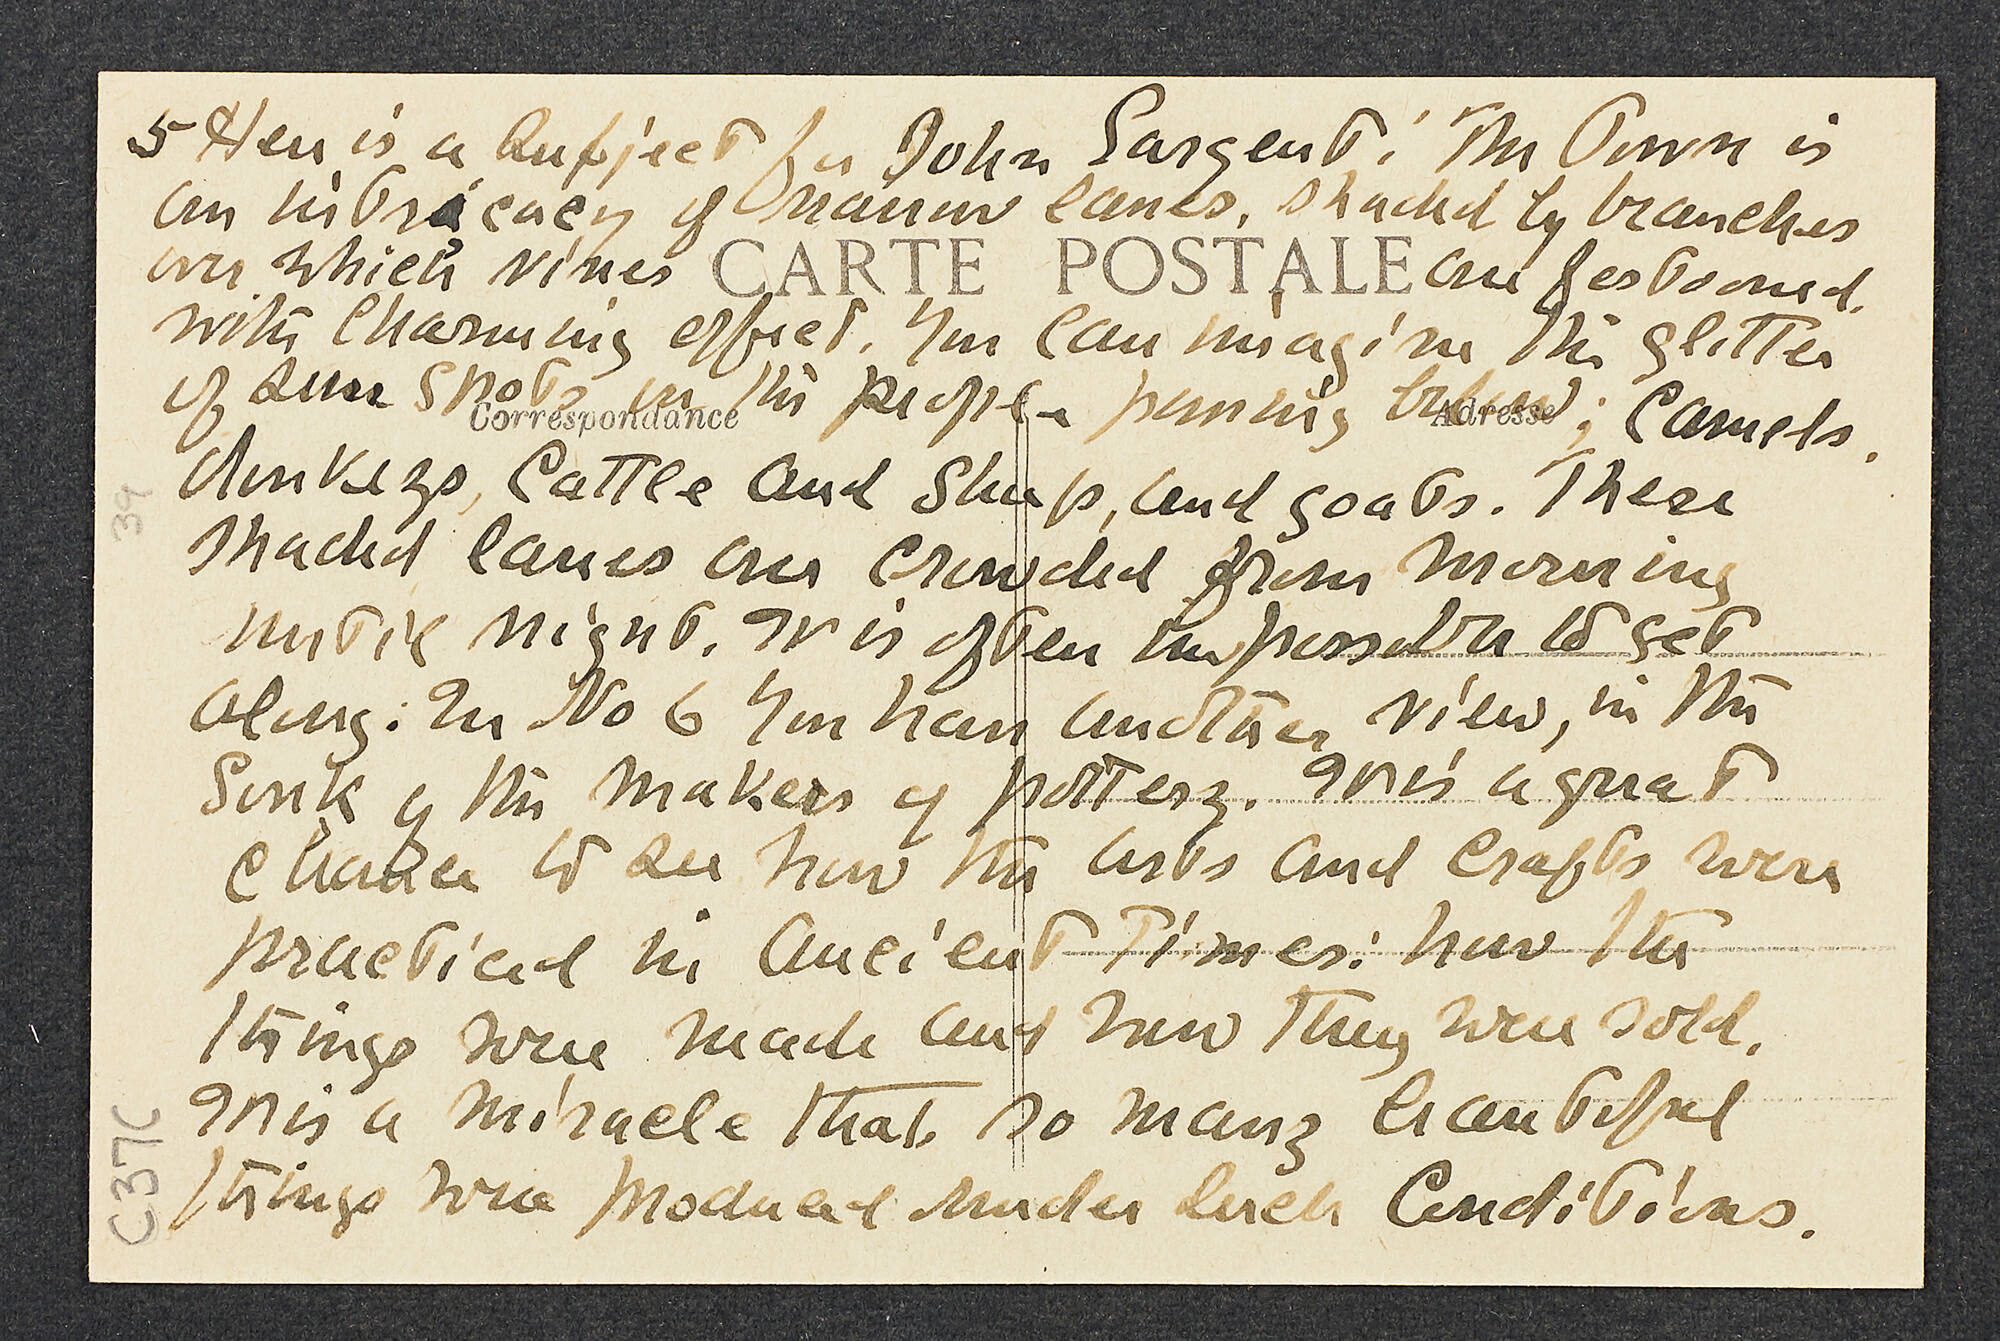 5 Here is a subject for John Sargent: The Town is
an intricacy of narrow lanes, shaded by branches
over which vines are festooned
CARTE POSTALE
with charming effect. You can imagine the glitter
of sun spots on the people passing below; Camels,
Correspondance
Adresse
donkeys, Cattle and Sheep, and goats. These
shaded lanes are crowded from morning
39
until night. It is often impossible to get
along: In No 6 you have another view, in the
Souk of the makers of pottery. It is a great
chance to see how the arts and crafts were
practiced in Ancient Times: how the
things were made and how they were sold.
It is a miracle that so many beautiful
things were produced under such Conditions.
C37C